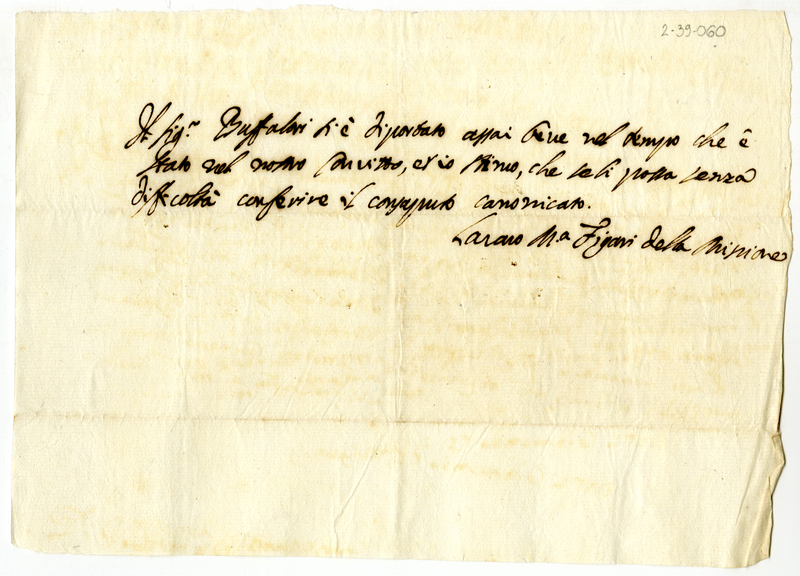 2-39-060
Il sig.r Buffalari si è diportato assai bene nel tempo che è
stato nel nostro Convitto, et io stimo, che se li possa senza
difficoltà conferire il consaputo canonicato.
Lazaro M.a Figari della Missione